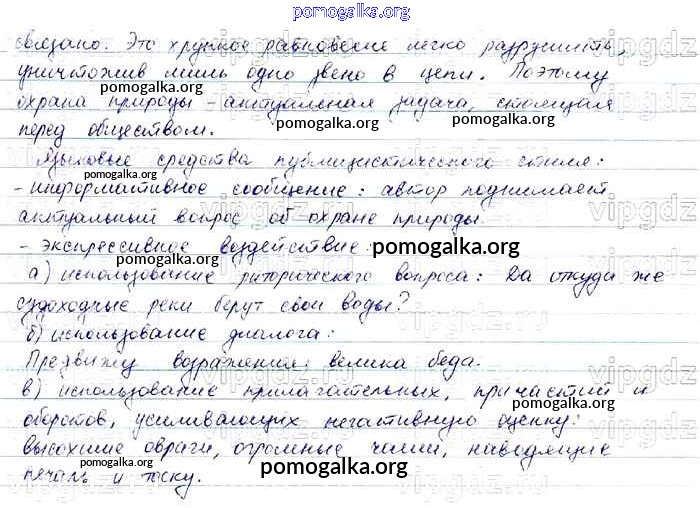 pomogalka.org
связано. Это хрупкое равновесие легко разрушить,
уничтожив лишь одно звено в цепи. Поэтому
охрана природы - актуальная задача, стоящая
pomogalka.org
pomogalka.org
перед обществом.
pomogalka.org
Языковые средства публицистического стиля:
- информативное сообщение: автор поднимает
актуальный вопрос об охране природы.
- экспрессивное воздействие:
pomogalka.org
а) использование риторического вопроса: Да откуда же
судоходные реки берут свои воды?
б) использование диалога:
Предвижу возражения: велика беда.
в) использование прилагательных, причастий и
pomogalka.org
оборотов, усиливающих негативную оценку:
высохшие овраги, огромные чаши, наводящие
pomogalka.org
pomogalka.org
печаль и тоску.
vipgdz
vipgdz.ru